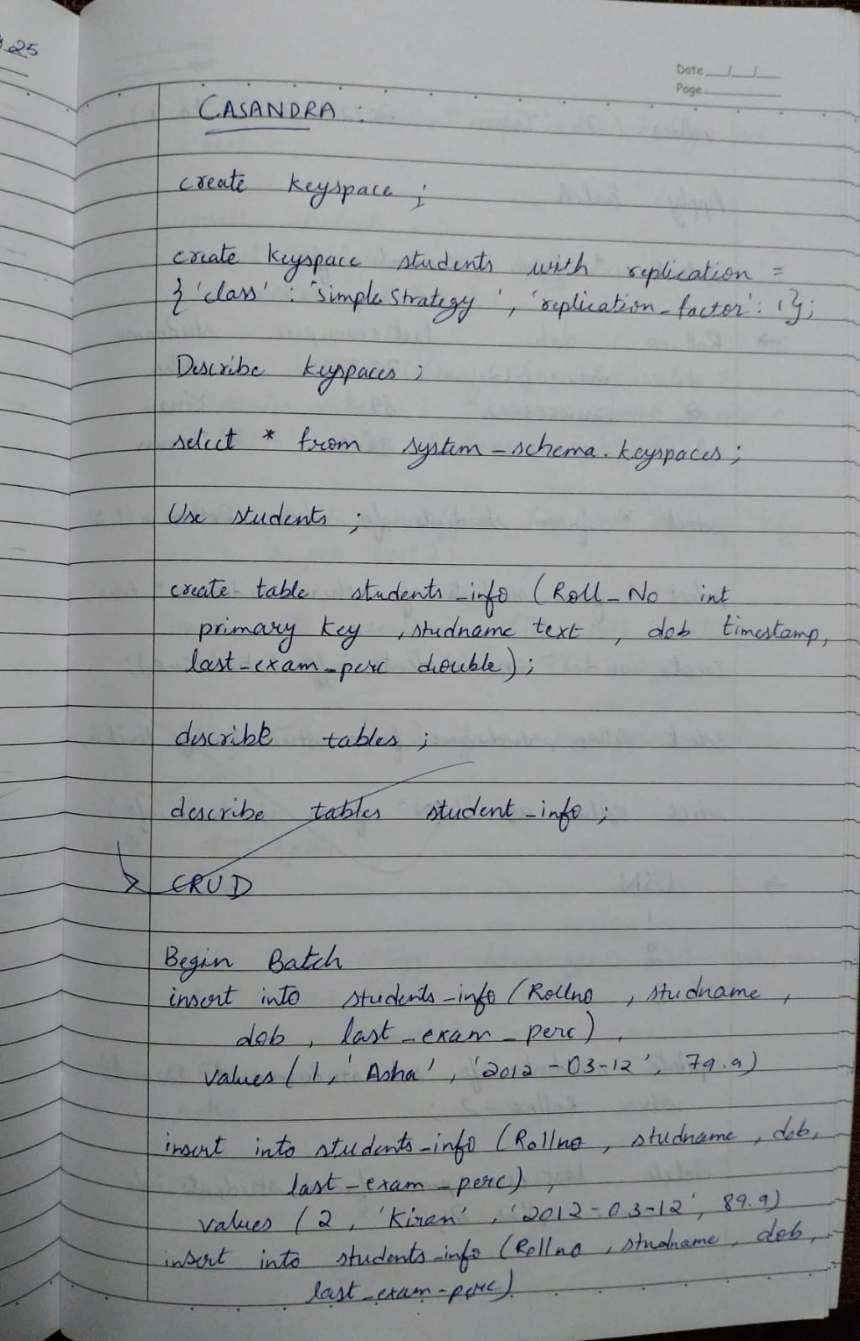 25
Date / /
Page
CASANDRA :
create keyspace ;
create keyspace students with replication =
{ 'class' : 'simple Strategy ' , 'replication_factor' : 1};
Describe keyspaces ;
select * from system_schema.keyspaces ;
Use students ;
create table students_info (Roll_No int
primary key , studname text , dob timestamp,
last_exam_perc double) ;
describe tables ;
describe tables student_info ;
CRUD
Begin Batch
insert into students_info (Rollno , studname ,
dob , last_exam_perc) ,
values ( 1, 'Asha' , '2012-03-12' , 79.9)
insert into students_info (Rollno , studname , dob,
last_exam_perc) ,
values ( 2 , 'Kiran' , '2012-03-12' , 89.9)
insert into students_info (Rollno , studname , dob,
last_exam_perc)